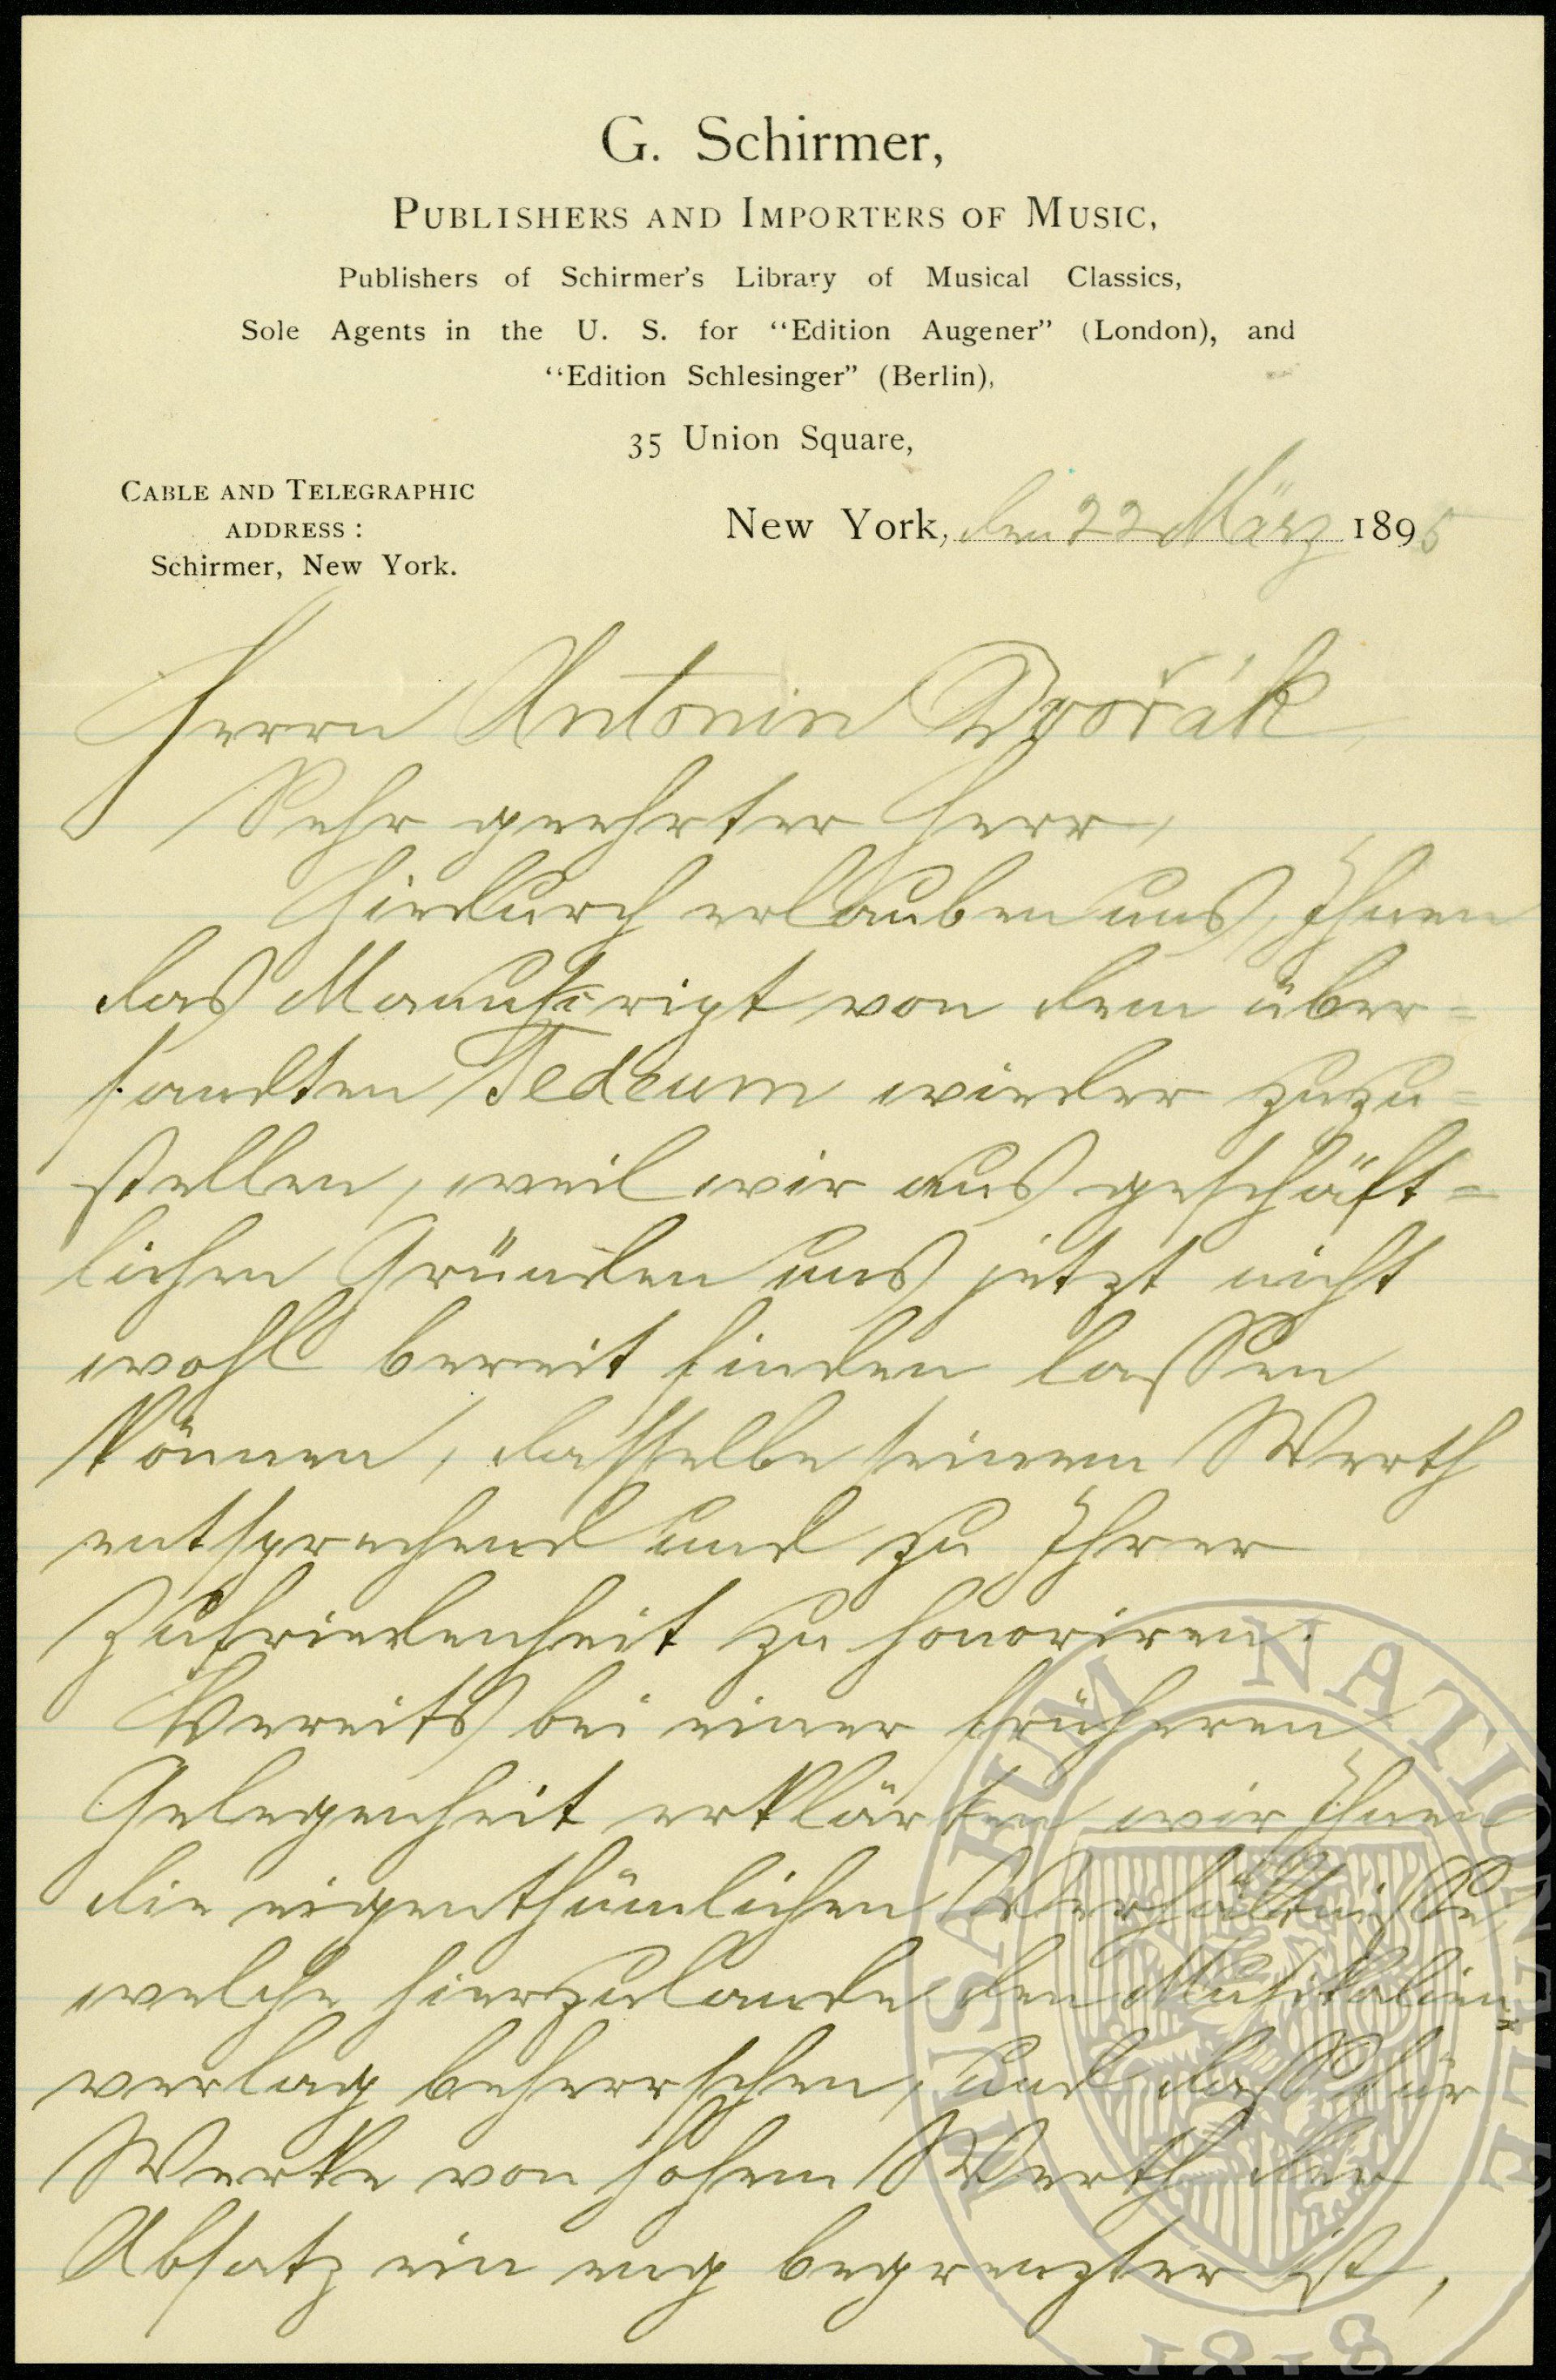 G. Schirmer,
PUBLISHERS AND IMPORTERS OF MUSIC,
Publishers of Schirmer's Library of Musical Classics,
Sole Agents in the U. S. for "Edition Augener" (London), and
"Edition Schlesinger" (Berlin),
35 Union Square,
CABLE AND TELEGRAPHIC
ADDRESS :
Schirmer, New York.
New York, den 22 März 1895
Herrn Antonin Dvořák
Sehr geehrter Herr,
Hiedurch erlauben uns, Ihnen
das Manuscript von dem über=
sandten Tedeum wieder zuzu=
stellen, weil wir aus geschäft=
lichen Gründen uns jetzt nicht
wohl bereit finden lassen
können, dasselbe seinem Werth
entsprechend und zu Ihrer
Zufriedenheit zu honoriren.
Bereits bei einer früheren
Gelegenheit erklärten wir Ihnen
die eigenthümlichen Verhältnisse,
welche hierzulande den Musikalien-
verlag beherrschen, und daß für
Werke von hohem Werth der
Absatz ein eng begrenzter ist,
MUSAEUM NATIONALE
1818